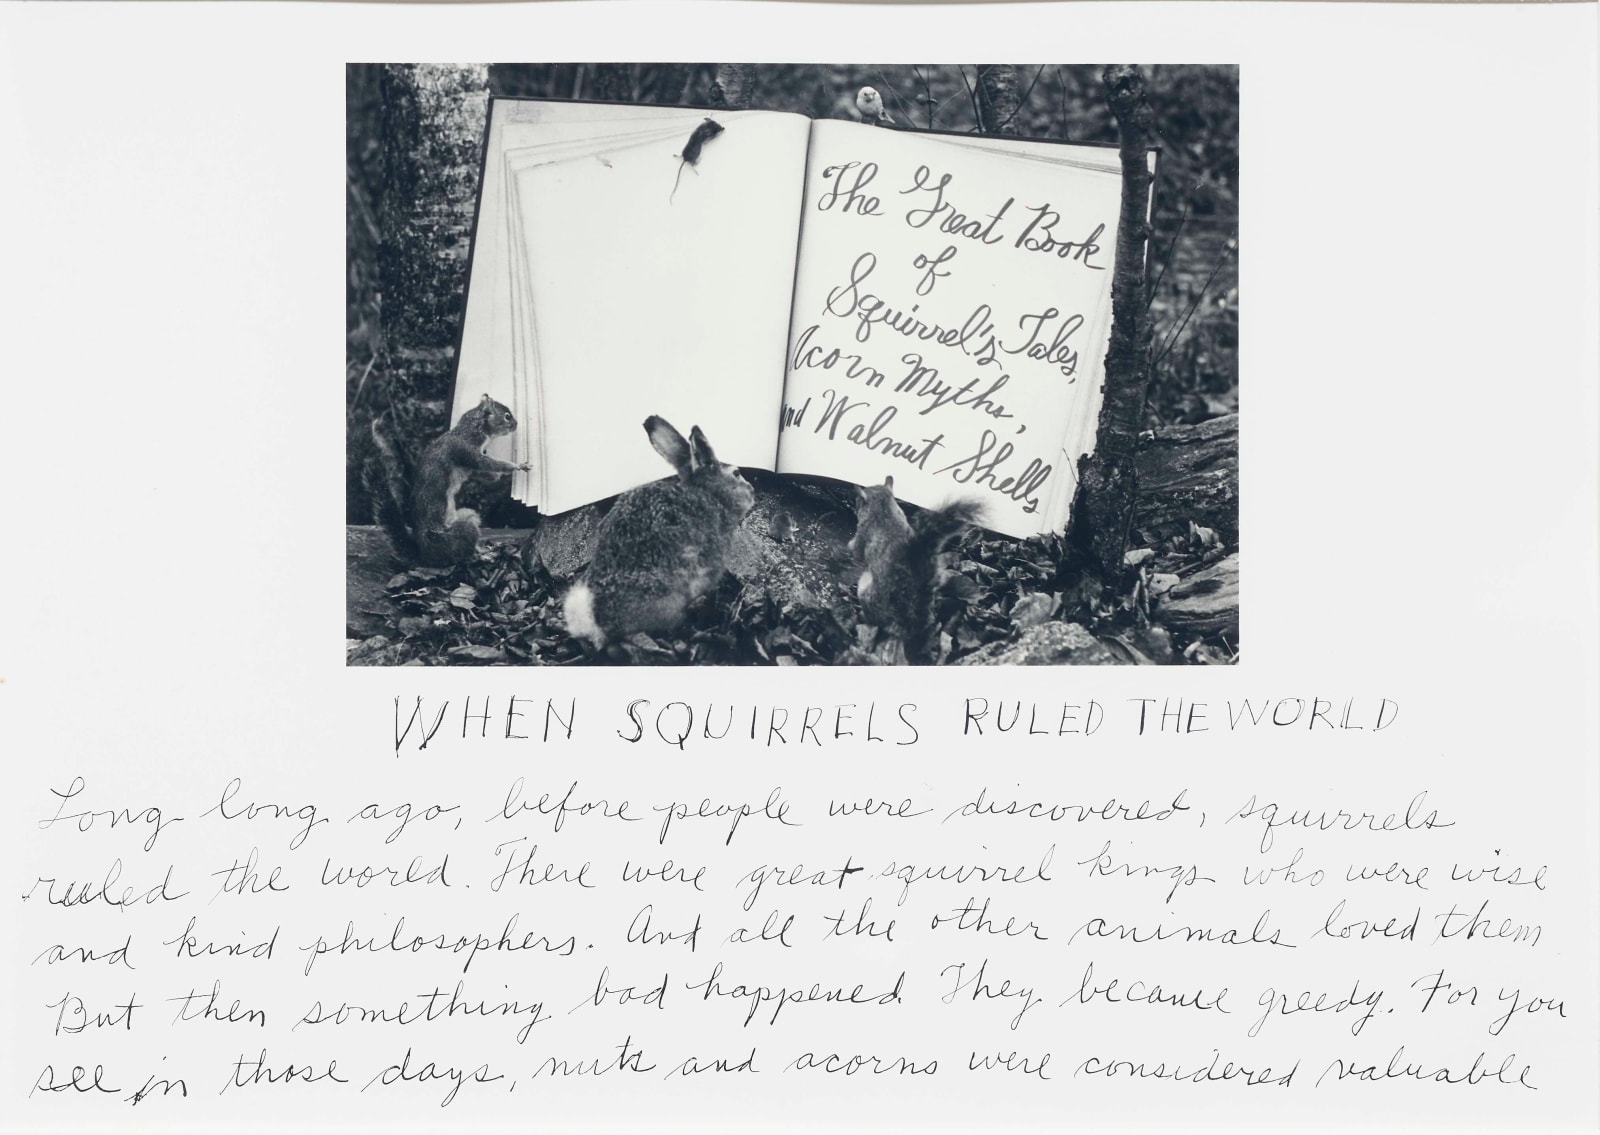 The Great Book
of
Squirrel's Tales,
Acorn Myths,
and Walnut Shells
WHEN SQUIRRELS RULED THE WORLD
Long long ago, before people were discovered, squirrels
ruled the world. There were great squirrel kings who were wise
and kind philosophers. And all the other animals loved them
But then something bad happened. They became greedy. For you
see in those days, nuts and acorns were considered valuable